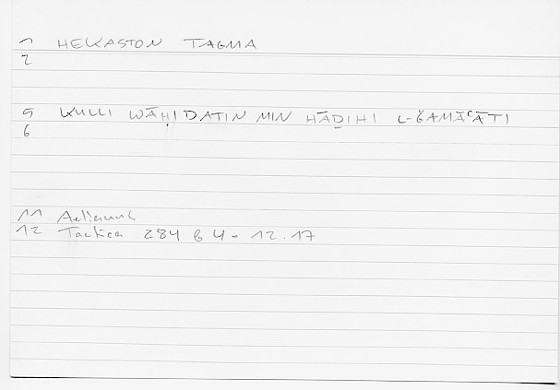 1 HEKASTON TAGMA
2
5 KULLI WĀḤIDATIN MIN HĀḎIHI L-ǦAMĀʿĀTI
6
11 Aelianus
12 Tactica 284 b 4 - 12.17